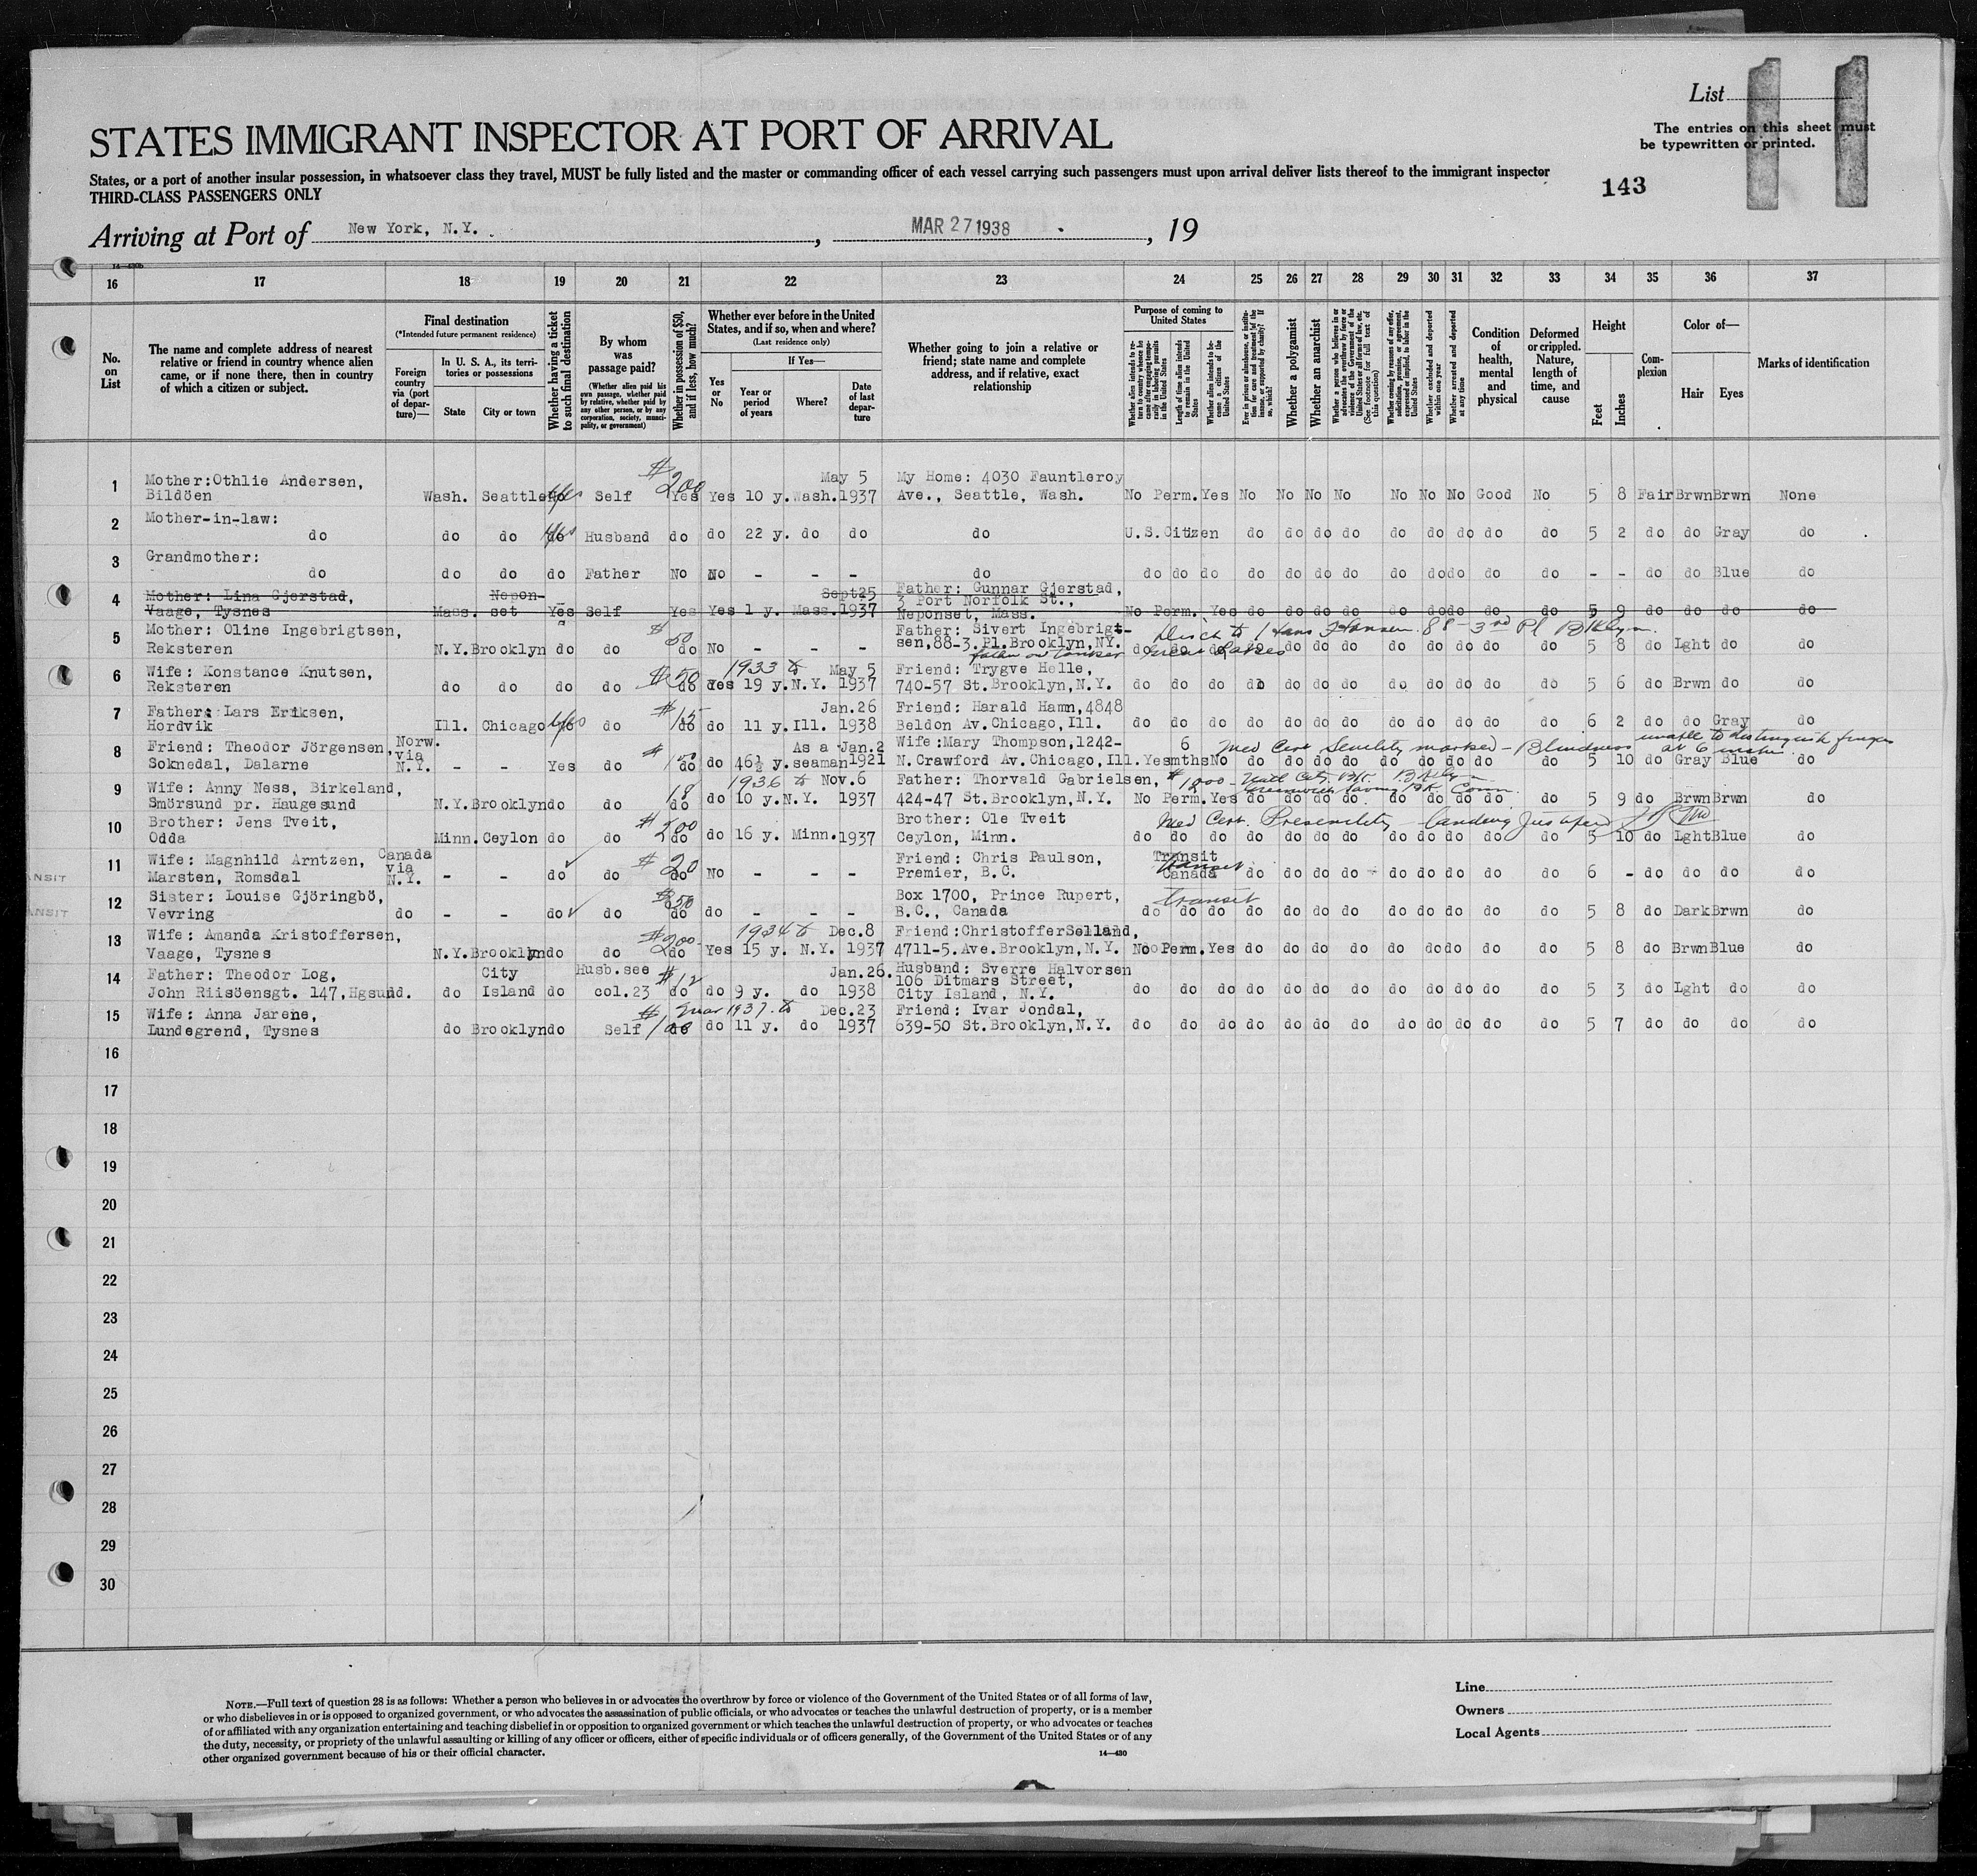 List
The entries on this sheet must
be typewritten or printed.
STATES IMMIGRANT INSPECTOR AT PORT OF ARRIVAL
States, or a port of another insular possession, in whatsoever class they travel, MUST be fully listed and the master or commanding officer of each vessel carrying such passengers must upon arrival deliver lists thereof to the immigrant inspector
THIRD-CLASS PASSENGERS ONLY
143
Arriving at Port of New York, N.Y. , MAR 27 1938 , 19
16 17 18 19 20 21 22 23 24 25 26 27 28 29 30 31 32 33 34 35 36 37
No. on List
The name and complete address of nearest relative or friend in country whence alien came, or if none there, then in country of which a citizen or subject.
Final destination
(*Intended future permanent residence)
Foreign country via (port of departure)—
In U. S. A., its territories or possessions
State
City or town
Whether having a ticket to such final destination
By whom was passage paid?
(Whether alien paid his own passage, whether paid by relative, whether paid by any other person, or by any corporation, society, municipality, or government)
Whether in possession of $50, and if less, how much?
Whether ever before in the United States, and if so, when and where?
(Last residence only)
If Yes—
Yes or No
Year or period of years
Where?
Date of last departure
Whether going to join a relative or friend; state name and complete address, and if relative, exact relationship
Purpose of coming to United States
Length of time alien intends to remain in the United States
Whether alien intends to become a citizen of the United States
Whether a polygamist
Whether an anarchist
Whether excluded and deported within one year
Whether arrested and deported at any time
Condition of health, mental and physical
Deformed or crippled. Nature, length of time, and cause
Height
Feet
Inches
Complexion
Color of—
Hair
Eyes
Marks of identification
1 Mother:Othlie Andersen, Bildöen Wash. Seattle Yes Self $200 Yes Yes 10 y. Wash. May 5 1937 My Home: 4030 Fauntleroy Ave., Seattle, Wash. No Perm. Yes No No No No No No No Good No 5 8 Fair Brwn Brwn None
2 Mother-in-law: do do do Yes Husband do do 22 y. do do do U.S.Citizen do do do do do do do do do 5 2 do do Gray do
3 Grandmother: do do do do Father No No - - - do do do do do do do do do do do do do - - do do Blue do
4 Mother: Lina Gjerstad, Vaage, Tysnes Mass. Neponset Yes Self Yes Yes 1 y. Mass. Sept25 1937 Father: Gunnar Gjerstad, 3 Port Norfolk St., Neponset, Mass. No Perm. Yes do do do do do do do do do 5 9 do do do do
5 Mother: Oline Ingebrigtsen, Reksteren N.Y. Brooklyn do do $50 do No - - - Father: Sivert Ingebrigtsen, 88-3.Pl.Brooklyn,NY. Disch to Hans Hansen 88-3rd Pl Bklyn. do do do do do do do do do do do do 5 8 do Lght do do
father on tanker Great Lakes
6 Wife: Konstance Knutsen, Reksteren do do do do $50 do Yes 1933 to 19 y. N.Y. May 5 1937 Friend: Trygve Helle, 740-57 St.Brooklyn,N.Y. do do do do do do do do do do do do 5 6 do Brwn do do
7 Father: Lars Eriksen, Hordvik Ill. Chicago Yes do $15 do do 11 y. Ill. Jan.26 1938 Friend: Harald Hamn,4848 Beldon Av.Chicago,Ill. do do do do do do do do do do do do 6 2 do do Gray do
8 Friend: Theodor Jörgensen, Soknedal, Dalarne Norw. via N.Y. - - Yes do $150 do do 46½ y. As a seaman Jan.2 1921 Wife:Mary Thompson,1242- N.Crawford Av.Chicago,Ill. Yes 6 mths No do do do do do do do do do 5 10 do Gray Blue do
Med Cert Senility marked - Blindness unable to distinguish fingers at 6 inches.
9 Wife: Anny Ness, Birkeland, Smörsund pr. Haugesund N.Y. Brooklyn do do 18 do do 1936 to 10 y. N.Y. Nov.6 1937 Father: Thorvald Gabrielsen, 424-47 St.Brooklyn,N.Y. No Perm. Yes do do do do do do do do do 5 9 do Brwn Brwn do
$1200 - Natl City Bk. Bklyn
Greenwich Saving Bk
10 Brother: Jens Tveit, Odda Minn. Ceylon do do $200 do do 16 y. Minn. 1937 Brother: Ole Tveit Ceylon, Minn. do do do do do do do do do do do do 5 10 do Lght Blue do
Med Cert. Presenility - landing
11 Wife: Magnhild Arntzen, Marsten, Romsdal Canada via N.Y. - - do do $20 do No - - - Friend: Chris Paulson, Premier, B.C. Transit Canada transit do do do do do do do do do 6 - do do do do
12 Sister: Louise Gjöringbö, Vevring do - - do do $250 do do - - - Box 1700, Prince Rupert, B.C., Canada transit do do do do do do do do do do do do 5 8 do Dark Brwn do
13 Wife: Amanda Kristoffersen, Vaage, Tysnes N.Y. Brooklyn do do $200 do Yes 1934 to 15 y. N.Y. Dec.8 1937 Friend:Christoffer Selland, 4711-5.Ave.Brooklyn,N.Y. No Perm. Yes do do do do do do do do do 5 8 do Brwn Blue do
14 Father: Theodor Log, John Riisöensgt. 147,Hgsund. do City Island do Husb.see col.23 $12 do do 9 y. do Jan.26. 1938 Husband: Sverre Halvorsen 106 Ditmars Street, City Island, N.Y. do do do do do do do do do do do do 5 3 do Lght do do
15 Wife: Anna Jarene, Lundegrend, Tysnes do Brooklyn do Self $100 do do Mar 1937 to 11 y. do Dec.23 1937 Friend: Ivar Jondal, 639-50 St.Brooklyn,N.Y. do do do do do do do do do do do do 5 7 do do do do
16
17
18
19
20
21
22
23
24
25
26
27
28
29
30
NOTE.—Full text of question 28 is as follows: Whether a person who believes in or advocates the overthrow by force or violence of the Government of the United States or of all forms of law,
or who disbelieves in or is opposed to organized government, or who advocates the assassination of public officials, or who advocates or teaches the unlawful destruction of property, or is a member
of or affiliated with any organization entertaining and teaching disbelief in or opposition to organized government or which teaches the unlawful destruction of property, or who advocates or teaches
the duty, necessity, or propriety of the unlawful assaulting or killing of any officer or officers, either of specific individuals or of officers generally, of the Government of the United States or of any
other organized government because of his or their official character.
14—430
Line
Owners
Local Agents